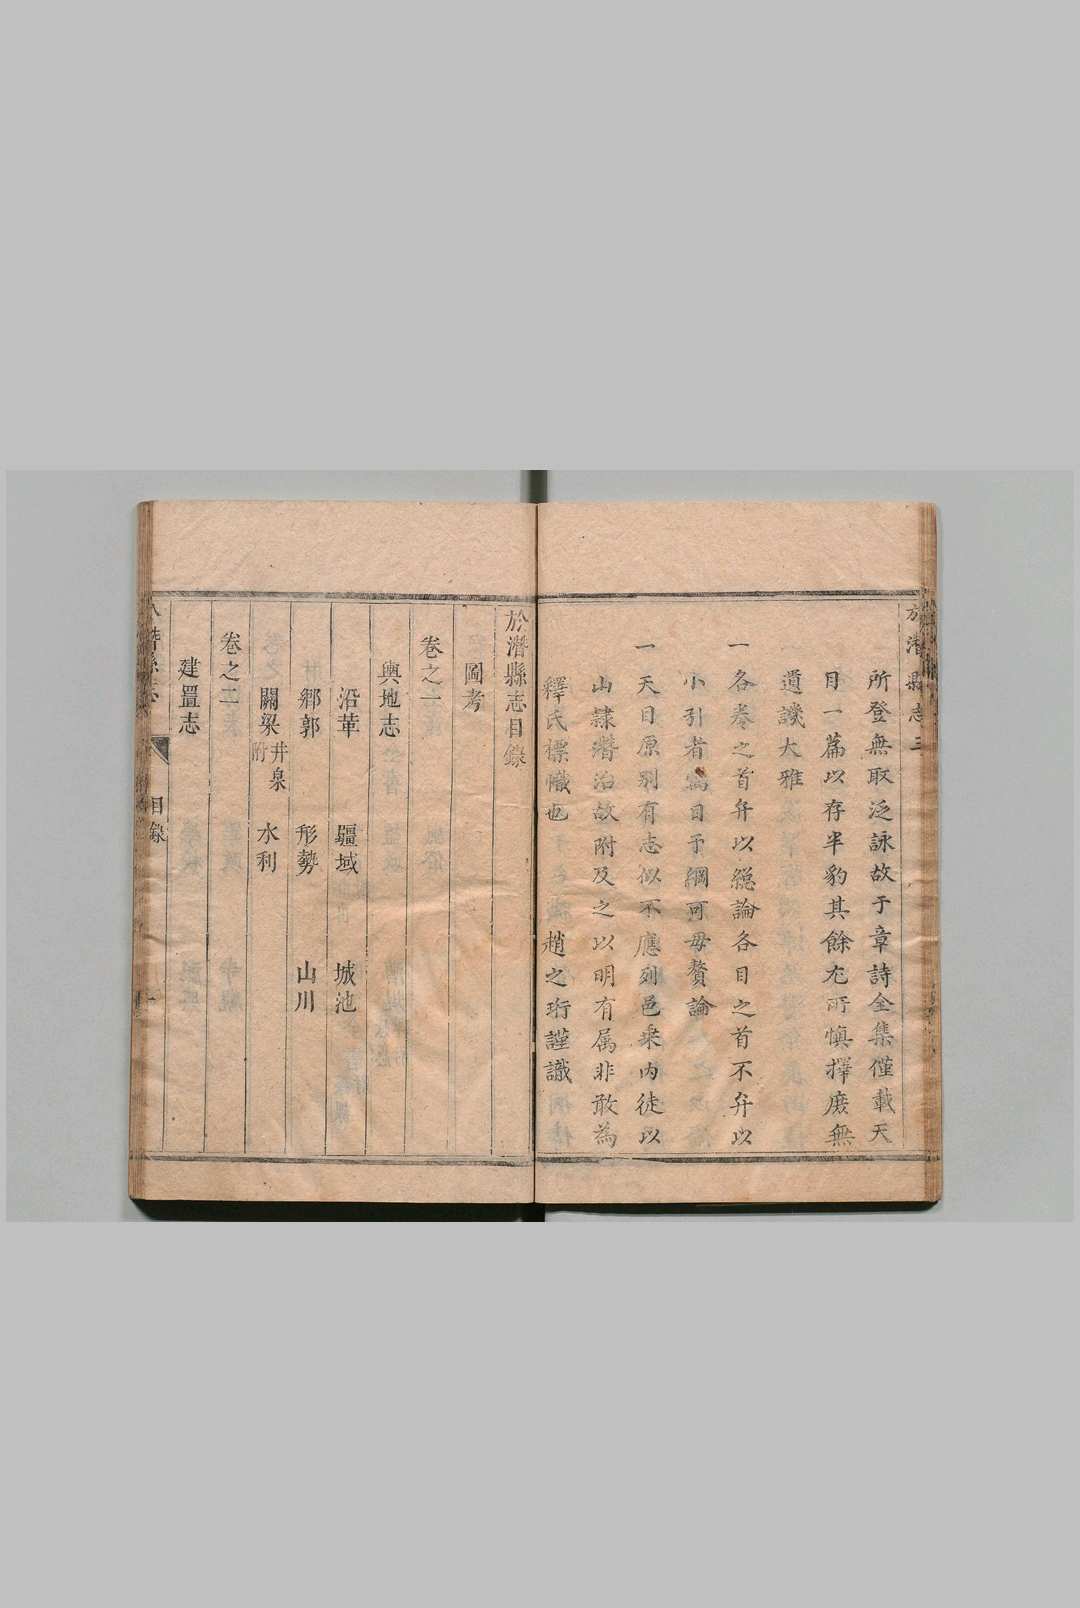 於潛縣志
所登無取泛詠故于章詩全集僅載天
目一篇以存半豹其餘尤所慎擇庶無
道譏大雅
一各卷之首弁以總論各目之首不弁以
小引者寫目予綱可毋贅論
一天目原別有志似不應列邑乘內徒以
山隷潛治故附及之以明有属非敢為
釋氏標幟也 趙之珩謹識
於潛縣志目錄
圖考
卷之一
輿地志
沿革 疆域 城池
鄉郭 形勢 山川
關梁 井泉附 水利
卷之二
建置志
目錄 一